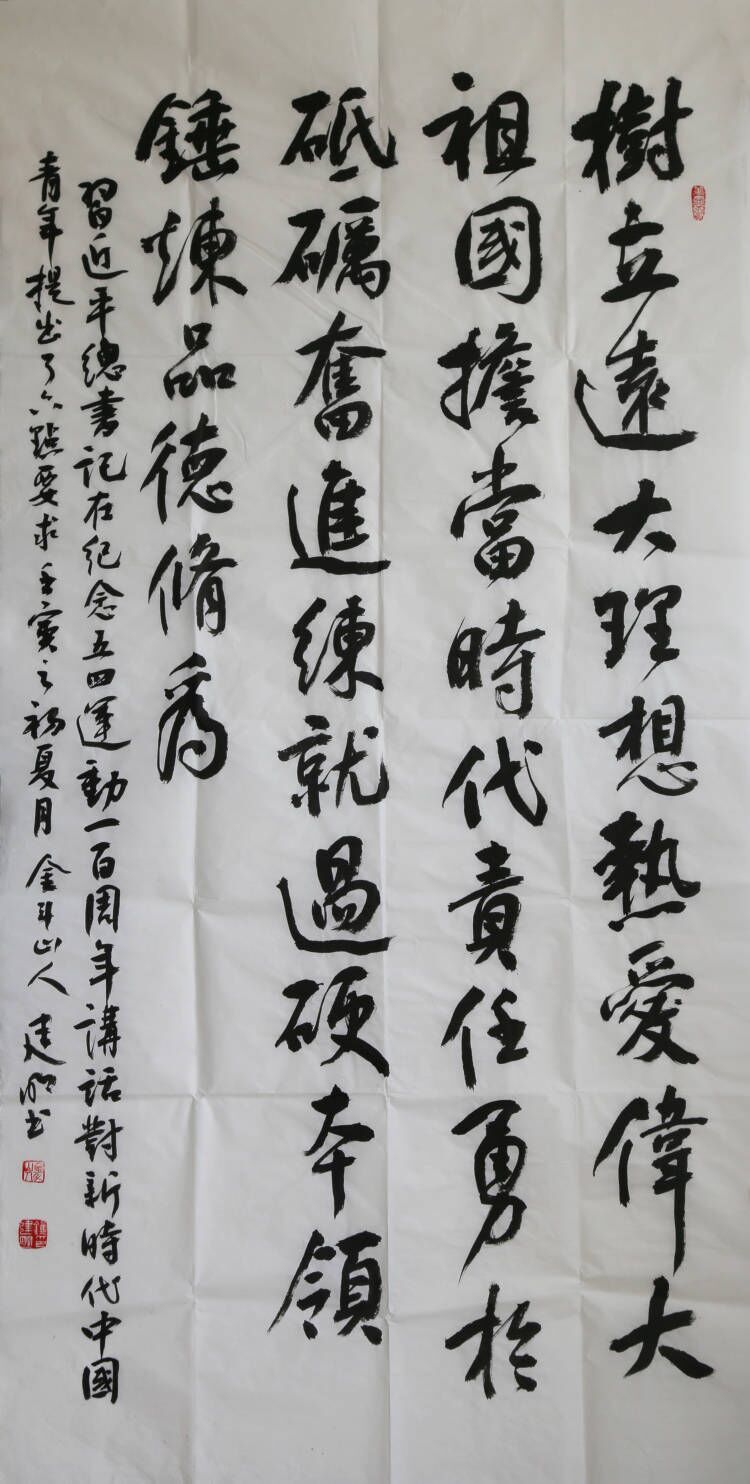 樹立遠大理想熱愛偉大
祖國擔當時代責任勇於
砥礪奮進練就過硬本領
錘煉品德脩為
習近平總書記在紀念五四運動一百周年講話對新時代中國
青年提出了六點要求壬寅之初夏月金斗山人建明书